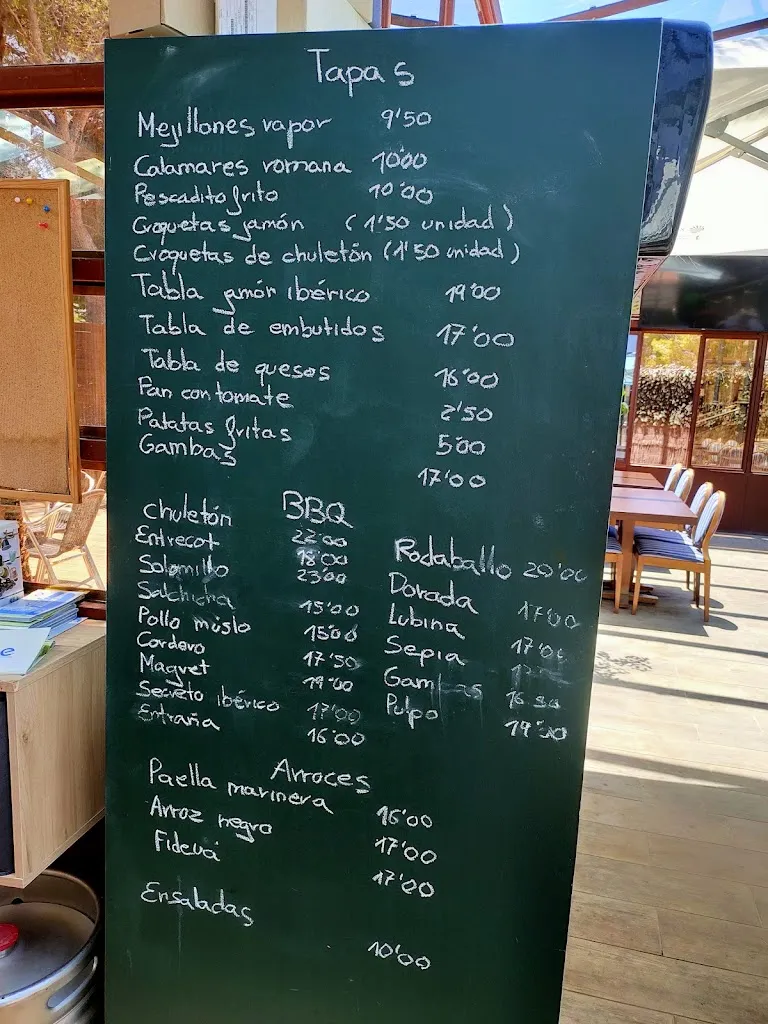 Tapas
Mejillones vapor 9'50
Calamares romana 10'00
Pescadito frito 10'00
Croquetas jamón (1'50 unidad)
Croquetas de chuletón (1'50 unidad)
Tabla jamón ibérico 19'00
Tabla de embutidos 17'00
Tabla de quesos 16'00
Pan con tomate 2'50
Patatas fritas 5'00
Gambas 17'00
BBQ
Chuletón 22'00
Entrecot 18'00
Solomillo 23'00
Salchicha 15'00
Pollo muslo 15'00
Cordero 17'50
Magret 19'00
Secreto ibérico 17'00
Entraña 16'00
Rodaballo 20'00
Dorada 17'00
Lubina 17'00
Sepia
Gambas 16'50
Pulpo 19'00
Arroces
Paella marinera 16'00
Arroz negro 17'00
Fideuá 17'00
Ensaladas 10'00